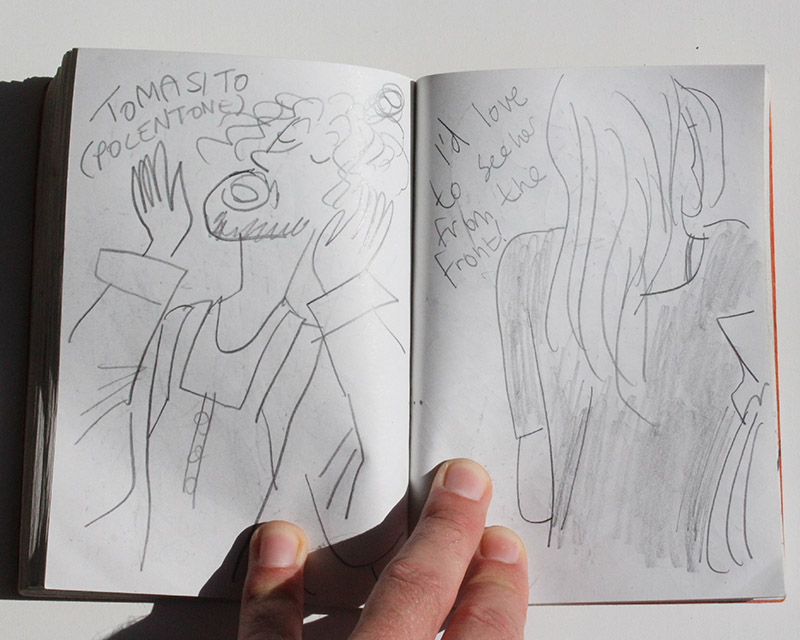 TOMASITO
(POLENTONE)
I'd love
to see her
from the
front!